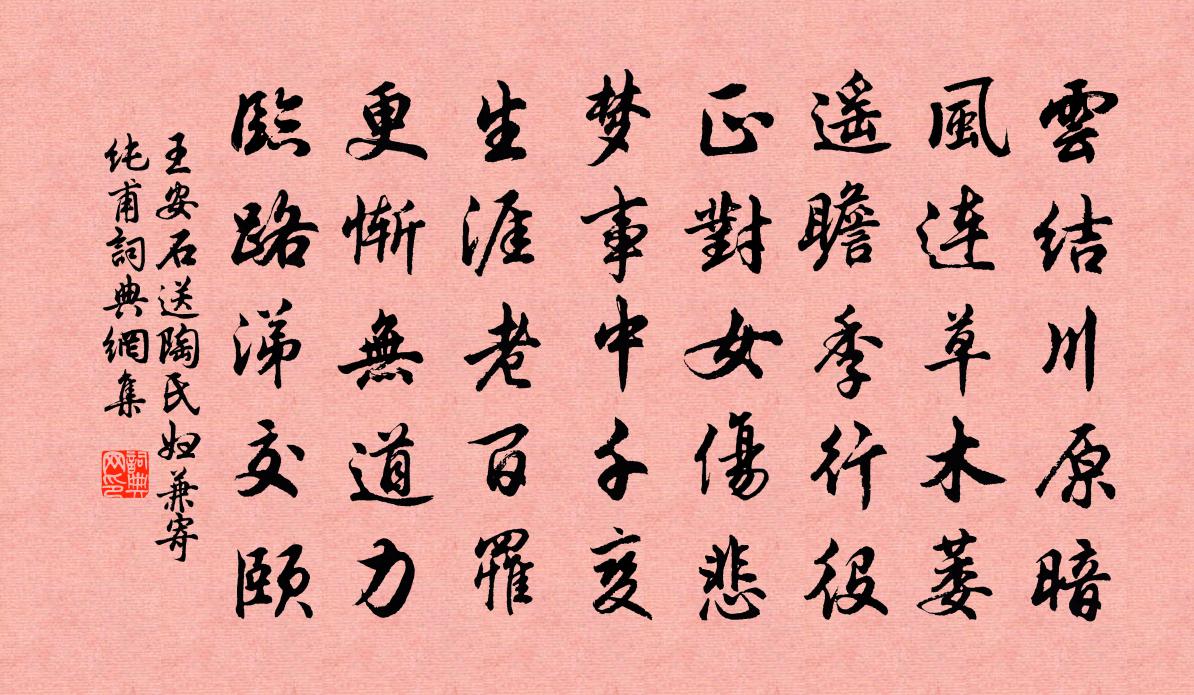 雲結川原暗
風連草木萎
遥瞻季行役
正對女傷悲
梦事中千变
生涯老百罹
更慚無道力
臨路涕交頤
王安石送陶氏妇兼寄
純甫詞典網集
詞典网印